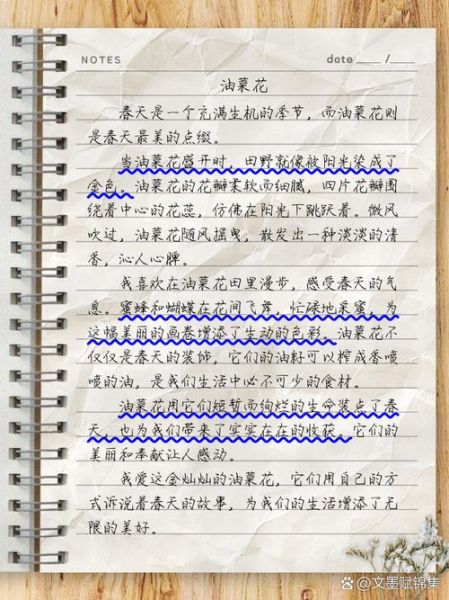 NOTES date /
油菜花
春天是一个充满生机的季节，而油菜花则
是春天最美的点缀。
当油菜花盛开时，田野就像被阳光染成了
金色。油菜花的花瓣柔软而细腻，四片花瓣围
绕着中心的花蕊，仿佛在阳光下跳跃着。微风
吹过，油菜花随风摇曳，散发出一种淡淡的清
香，沁人心脾。
我喜欢在油菜花田里漫步，感受春天的气
息。蜜蜂和蝴蝶在花间飞舞，忙碌地采蜜，为
这幅美丽的画卷增添了生动的色彩。油菜花不
仅仅是春天的装饰，它们的油籽可以榨成香喷
喷的油，是我们生活中必不可少的食材。
油菜花用它们短暂而绚烂的生命装点了春
天，也为我们带来了实实在在的收获。它们的
美丽和奉献让人感动。
我爱这金灿灿的油菜花，它们用自己的方
式诉说着春天的故事，为我们的生活增添了无
限的美好。
@文墨赋锦集